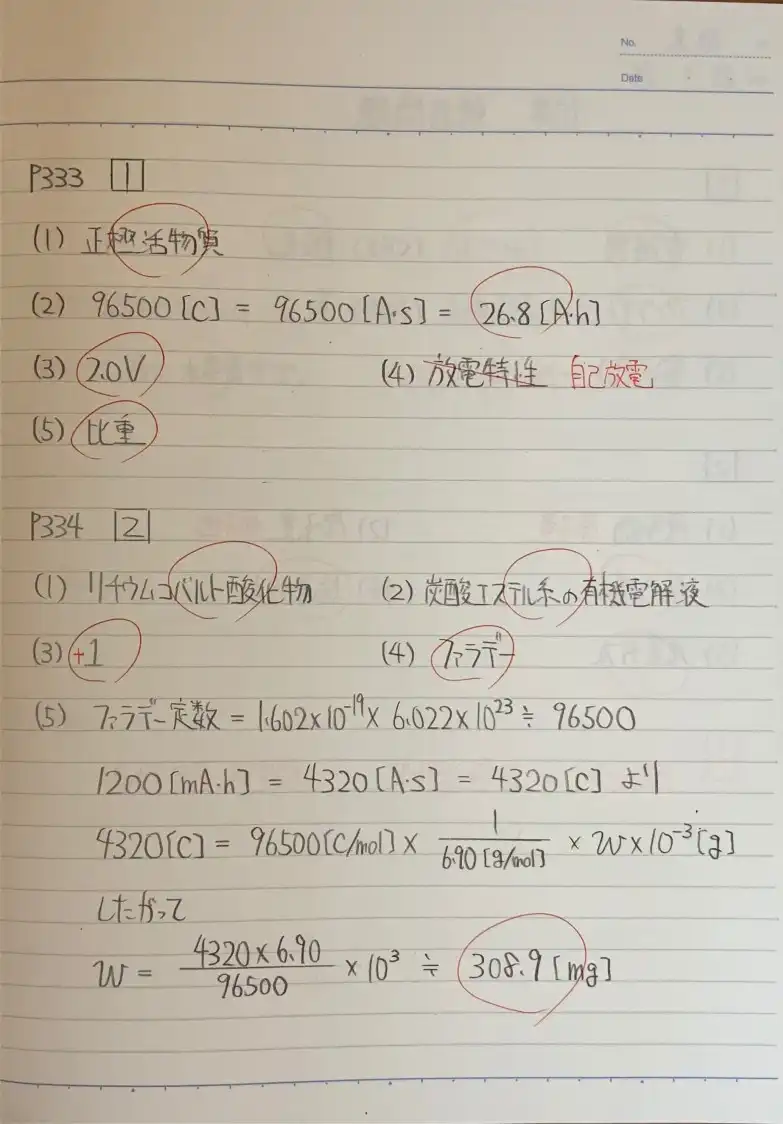 No.
Date
P333 1
(1) 正極活物質
(2) 96500[C] = 96500[A·s] = 26.8[A·h]
(3) 2.0V (4) 放電特性 自己放電
(5) 比重
P334 2
(1) リチウムコバルト酸化物 (2) 炭酸エステル系の有機電解液
(3) +1 (4) ファラデー
(5) ファラデー定数 = 1.602×10⁻¹⁹× 6.022×10²³ ≒ 96500
1200[mA·h] = 4320[A·s] = 4320[C] より
4320[C] = 96500[C/mol] × 1/6.90[g/mol] × W×10⁻³[g]
したがって
W = 4320×6.90/96500 ×10³ ≒ 308.9[mg]